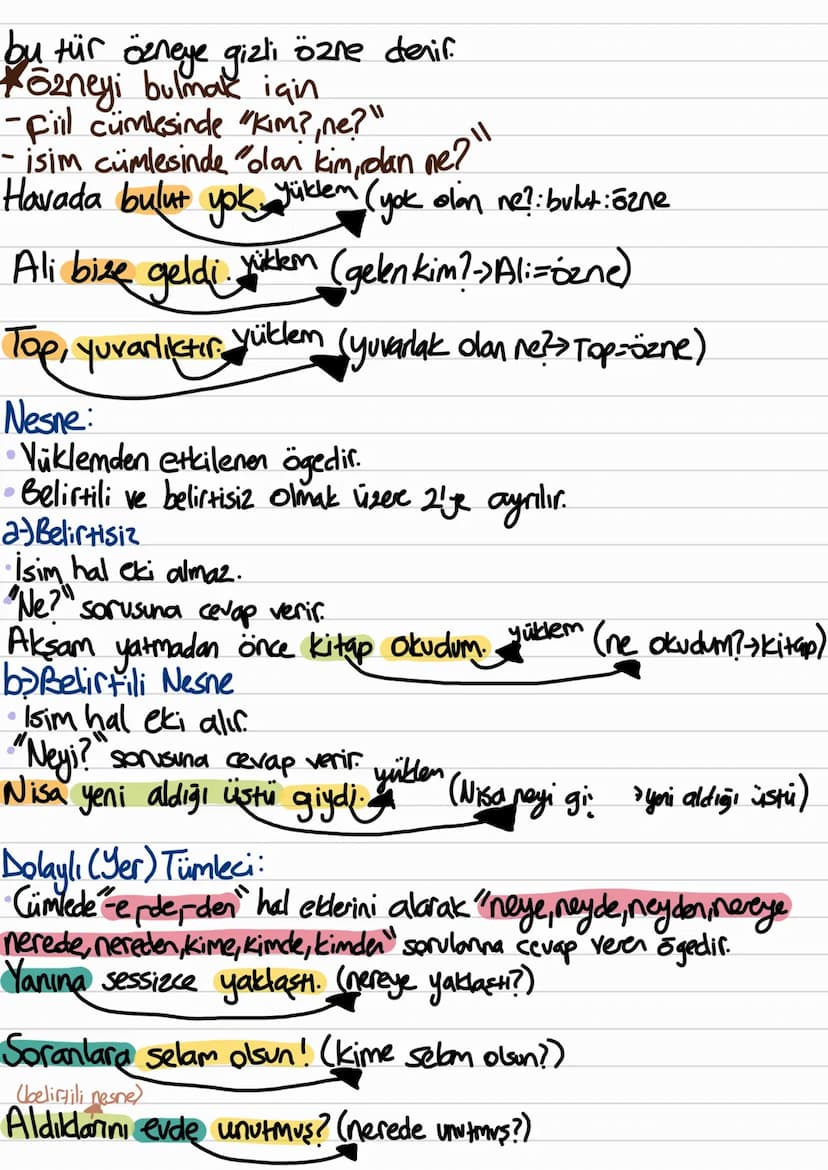 bu tür özneye gizli özne denir.
★Özneyi bulmak için
-fiil cümlesinde "kim?,ne?"
- isim cümlesinde "olan kim,olan ne?"
Havada bulut yok. yüklem (yok olan ne?:bulut:özne
Ali bize geldi. yüklem (gelen kim?->Ali=özne)
Top, yuvarlıktır. yüklem (yuvarlak olan ne?->Top=özne)
Nesne:
• Yüklemden etkilenen ögedir.
• Belirtili ve belirtisiz olmak üzere 2'ye ayrılır.
a-)Belirtisiz
• İsim hal eki almaz.
• "Ne?" sorusuna cevap verir.
Akşam yatmadan önce kitap okudum. yüklem (ne okudum?->kitap)
b-)Belirtili Nesne
• İsim hal eki alır.
• "Neyi?" sorusuna cevap verir.
Nisa yeni aldığı üstü giydi. yüklem (Nisa neyi gi >yeni aldığı üstü)
Dolaylı (Yer) Tümleci:
• Cümlede "-e,-de,-den" hal eklerini alarak "neye,neyde,neyden,nereye
nerede,nereden,kime,kimde,kimden" sorularına cevap veren ögedir.
Yanına sessizce yaklaştı. (nereye yaklaştı?)
Soranlara selam olsun! (kime selam olsun?)
(belirtili nesne)
Aldıklarını evde unutmuş? (nerede unutmuş?)